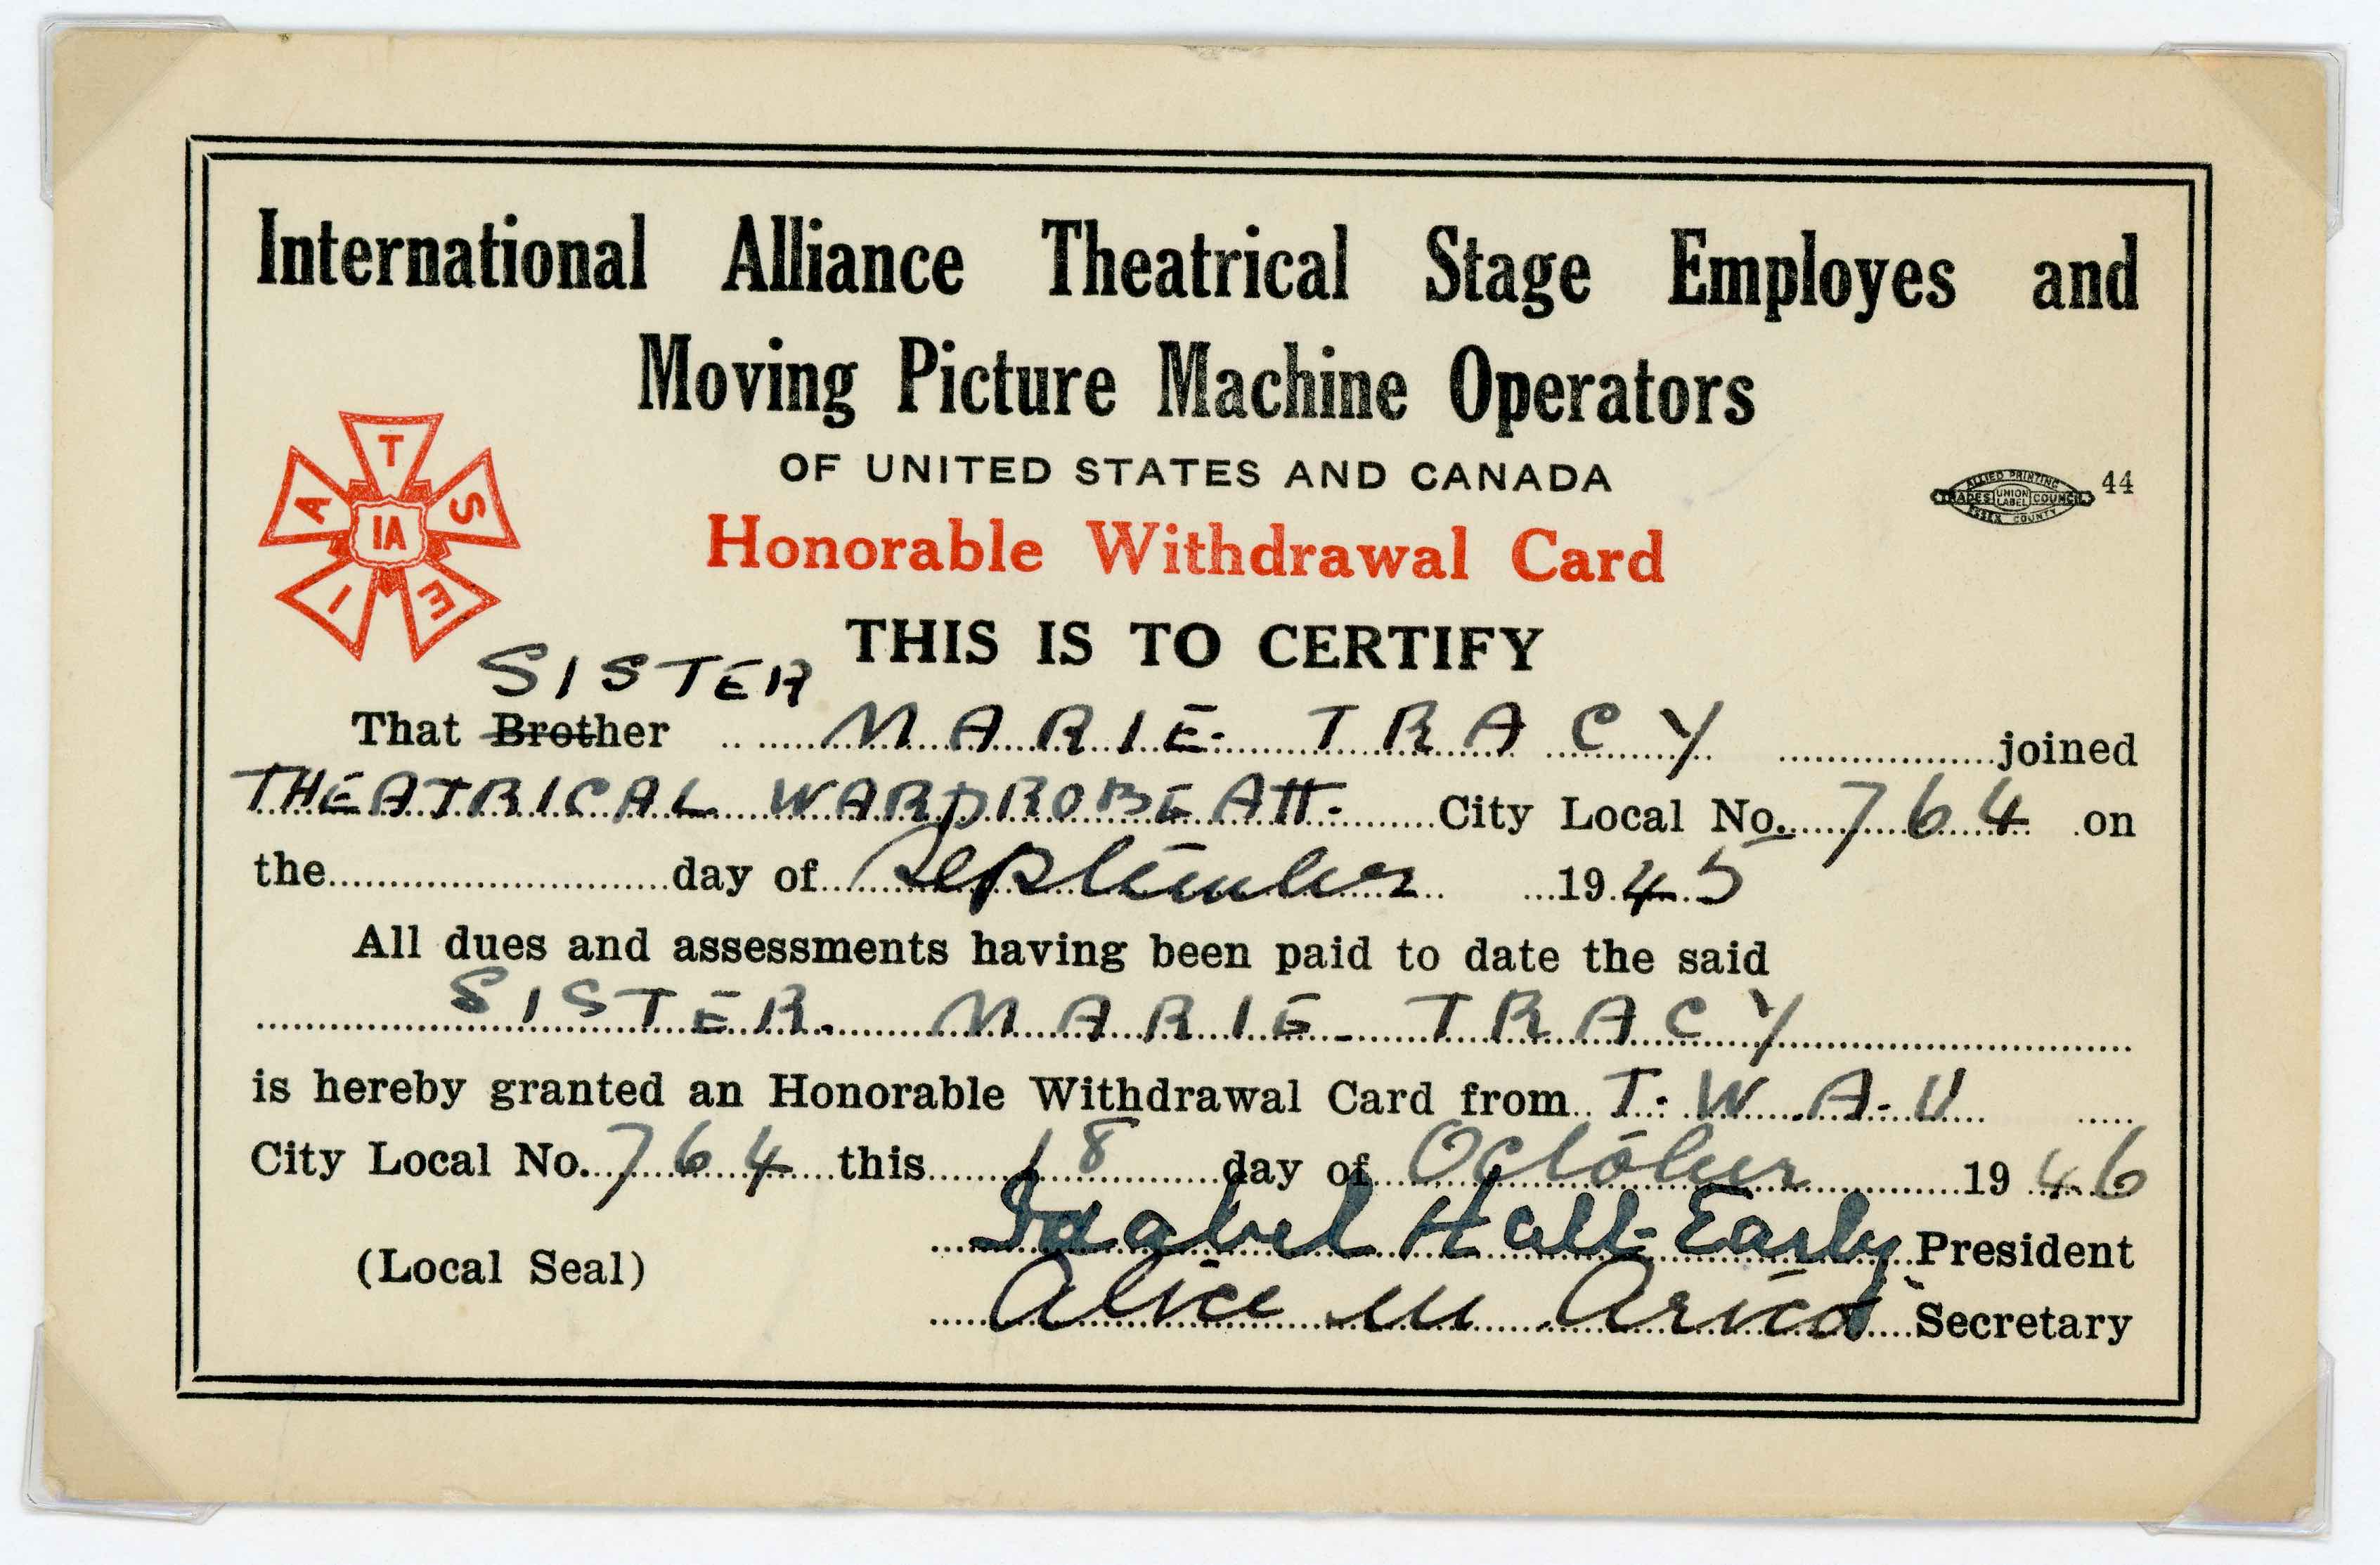 International Alliance Theatrical Stage Employes and
Moving Picture Machine Operators
OF UNITED STATES AND CANADA
I A T S E
IA
ALLIED PRINTING
TRADES UNION LABEL COUNCIL 44
ESSEX COUNTY
Honorable Withdrawal Card
THIS IS TO CERTIFY
SISTER
That Brother MARIE. TRACY joined
THEATRICAL WARDROBE ATT. City Local No. 764 on
the day of September 1945
All dues and assessments having been paid to date the said
SISTER. MARIE TRACY
is hereby granted an Honorable Withdrawal Card from T. W. A. U
City Local No. 764 this 18 day of October 1946
Isabel Hall-Early President
(Local Seal)
Alice M Arico Secretary